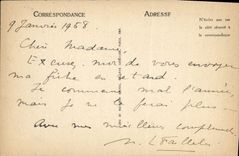 CORRESPONDANCE
ADRESSE
N'écrire que sur
le côté réservé à
la correspondance
9 Janvier 1958
Cher Madame,
Excusez-moi de vous envoyer
ma fiche en retard.
Je commence mal l'année,
mais je ne le ferai plus
Avec mes meilleurs compliments